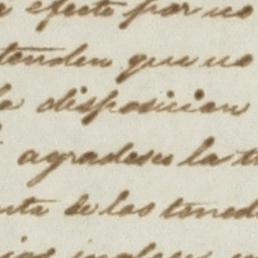 efecto por no
tenden que no
la disposicion
agradeseu la t
nta de los tened